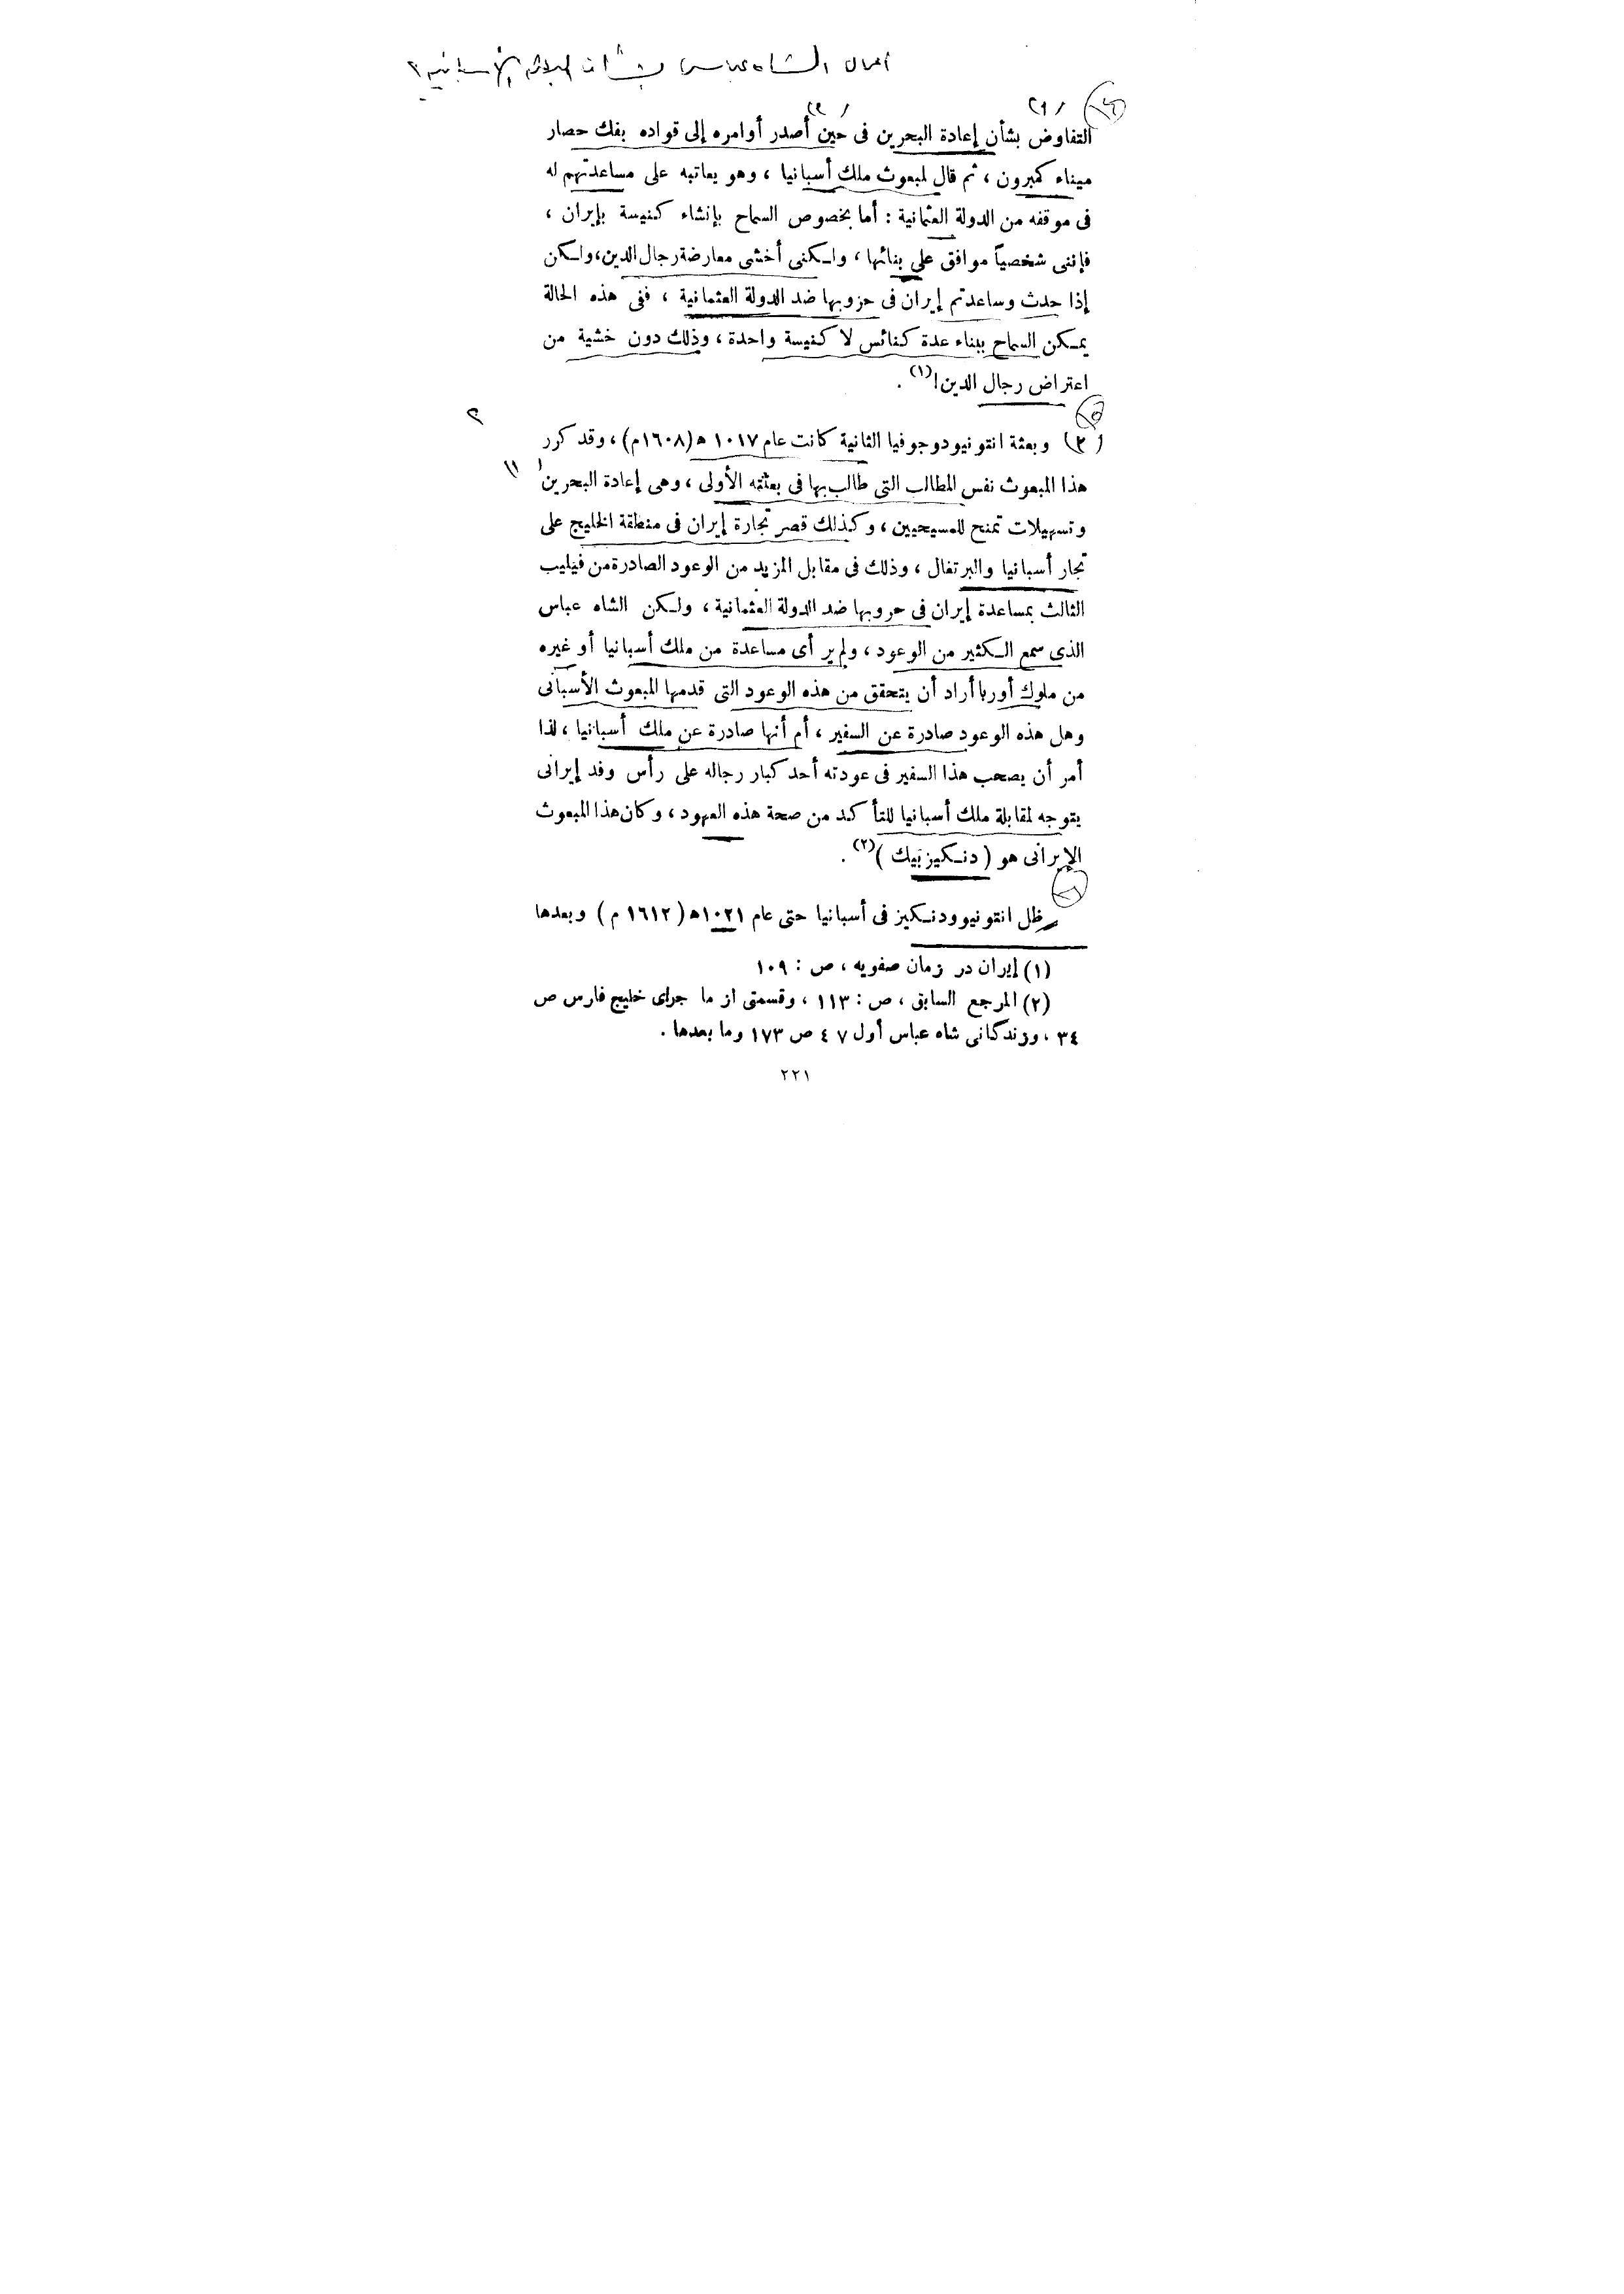 التفاوض بشأن إعادة البحرين فى حين أصدر أوامره إلى قواده بفك حصار
ميناء كمبرون ، ثم قال لمبعوث ملك أسبانيا ، وهو يعاتبه على مساعدتهم له
فى موقفه من الدولة العثمانية : أما بخصوص السماح بإنشاء كنيسة بإيران ،
فإننى شخصياً موافق على بنائها ، ولـكنى أخشى معارضة رجال الدين ، ولـكن
إذا حدث وساعدتم إيران فى حروبها ضد الدولة العثمانية ، ففى هذه الحالة
يمـكن السماح ببناء عدة كنائس لا كنيسة واحدة ، وذلك دون خشية من
اعتراض رجال الدين!(١) .
(٢) وبعثة انتونيودوجوفيا الثانية كانت عام ١٠١٧ ه (١٦٠٨م) ، وقد كرر
هذا المبعوث نفس المطالب التى طالب بها فى بعثته الأولى ، وهى إعادة البحرين
وتسهيلات تمنح للمسيحيين ، وكذلك قصر تجارة إيران فى منطقة الخليج على
تجار أسبانيا والبرتغال ، وذلك فى مقابل المزيد من الوعود الصادرة من فيليب
الثالث بمساعدة إيران فى حروبها ضد الدولة العثمانية ، ولـكن الشاه عباس
الذى سمع الـكثير من الوعود ، ولم ير أى مساعدة من ملك أسبانيا أو غيره
من ملوك أوربا أراد أن يتحقق من هذه الوعود التى قدمها المبعوث الأسبانى
وهل هذه الوعود صادرة عن السفير ، أم أنها صادرة عن ملك أسبانيا ، لذا
أمر أن يصحب هذا السفير فى عودته أحد كبار رجاله على رأس وفد إيرانى
يتوجه لمقابلة ملك أسبانيا للتأكد من صحة هذه العهود ، وكان هذا المبعوث
الإيرانى هو ( دنـكيز بيك )(٢) .
وظل انتونيو ودنـكيز فى أسبانيا حتى عام ١٠٢١ه ( ١٦١٢ م ) وبعدها
(١) إيران در زمان صفويه ، ص : ١٠٩
(٢) المرجع السابق ، ص : ١١٣ ، وقسمتى از ما جراى خليج فارس ص
٣٤ ، وزندكانى شاه عباس أول ٧ ٤ ص ١٧٣ وما بعدها .
٢٢١